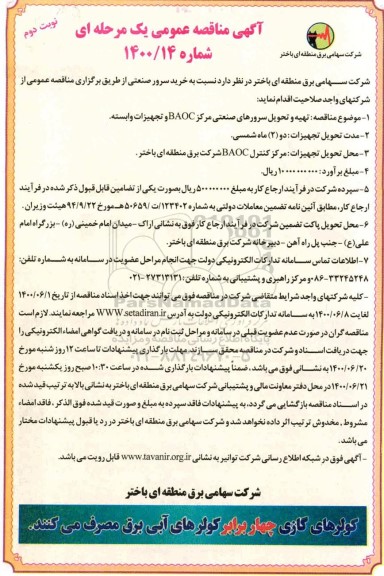 نوبت دوم
آگهی مناقصه عمومی یک مرحله ای
شماره ۱۴۰۰/۱۴
شرکت سهامی برق منطقه ای باختر
شرکت سهامی برق منطقه ای باختر در نظر دارد نسبت به خرید سرور صنعتی از طریق برگزاری مناقصه عمومی از
شرکتهای واجد صلاحیت اقدام نماید:
۱-موضوع مناقصه: تهیه و تحویل سرورهای صنعتی مرکز BAOC و تجهیزات وابسته.
۲-مدت تحویل تجهیزات: دو (۲) ماه شمسی.
۳-محل تحویل تجهیزات: مرکز کنترل BAOC شرکت برق منطقه ای باختر.
۴-مبلغ برآورد: ریال.
۵-سپرده شرکت در فرآیند ارجاع کار به مبلغ ریال بصورت یکی از تضامین قابل قبول ذکر شده در فرآیند
ارجاع کار، مطابق آئین نامه تضمین معاملات دولتی به شماره ۱۲۳۴۰۲/ت۵۰۶۵۹هـ مورخ ۹۴/۹/۲۲ هیئت وزیران.
۶-محل تحویل پاکت تضمین شرکت در فرآیند ارجاع کار فوق به نشانی اراک -میدان امام خمینی (ره) -بزرگراه امام
علی (ع) -جنب پل راه آهن - دبیرخانه شرکت برق منطقه ای باختر.
۷-اطلاعات تماس سامانه تدارکات الکترونیکی دولت جهت انجام مراحل عضویت در سامانه به شماره تلفن:
۳۳۲۴۵۲۴۸-۰۸۶ و مرکز راهبری و پشتیبانی به شماره تلفن: ۲۷۳۱۳۱۳۱-۰۲۱
-کلیه شرکتهای واجد شرایط متقاضی شرکت در مناقصه فوق می توانند جهت اخذ اسناد مناقصه از تاریخ ۱۴۰۰/۰۶/۱
لغایت ۱۴۰۰/۰۶/۸ به سامانه تدارکات الکترونیکی دولت به آدرس WWW.setadiran.ir مراجعه نمایند. لازم است
مناقصه گران در صورت عدم عضویت قبلی در سامانه و مراحل ثبت نام در سامانه و دریافت گواهی امضاء الکترونیکی را
جهت دریافت اسناد و شرکت در مناقصه محقق سازند. مهلت بارگذاری پیشنهادات تا ساعت ۱۲ روز شنبه مورخ
۱۴۰۰/۰۶/۲۰ به نشانی فوق می باشد، ضمناً پیشنهادات بارگذاری شده در ساعت ۱۰:۳۰ صبح روز یکشنبه مورخ
۱۴۰۰/۰۶/۲۱ در محل دفتر معاونت مالی و پشتیبانی شرکت سهامی برق منطقه ای باختر به نشانی بالا به ترتیب قید شده
در اسناد مناقصه بازگشایی می گردد، به پیشنهادات فاقد سپرده به مبلغ و صورت قید شده فوق الذکر، فاقد امضاء
مشروط، مخدوش ترتیب اثر داده نخواهد شد و شرکت سهامی برق منطقه ای باختر در رد یا قبول پیشنهادات مختار
می باشد.
-آگهی فوق در شبکه اطلاع رسانی شرکت توانیر به نشانی www.tavanir.org.ir قابل رویت می باشد.
شرکت سهامی برق منطقه ای باختر
کولرهای گازی چهار برابر کولرهای آبی برق مصرف می کنند.